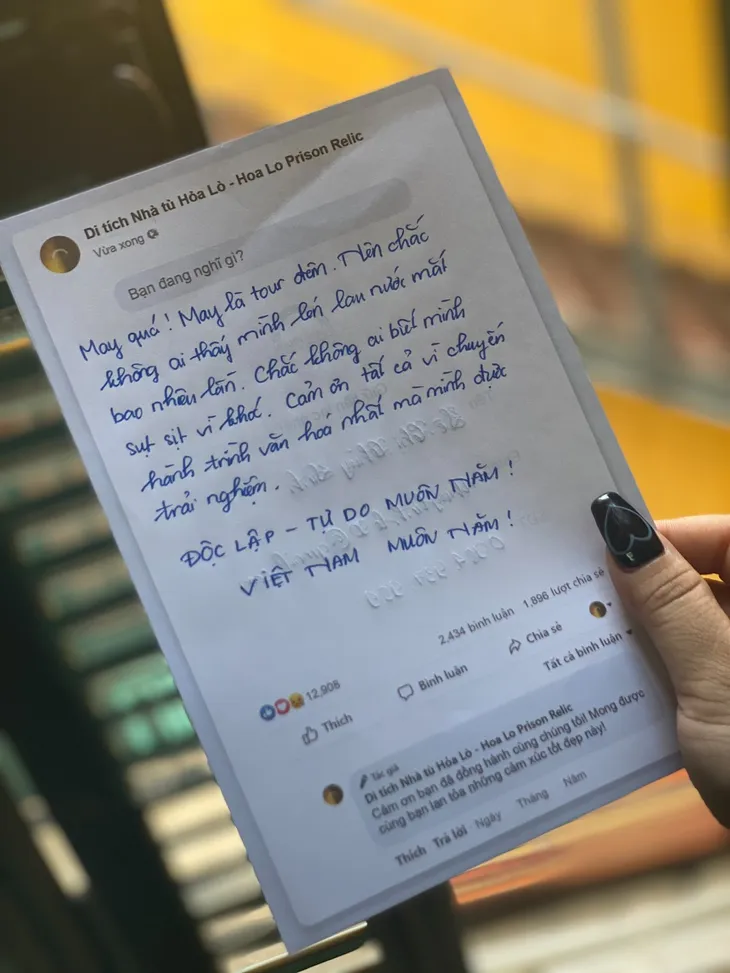 Di tích Nhà tù Hỏa Lò - Hoa Lo Prison Relic
Vừa xong
Bạn đang nghĩ gì?
May quá! May là tour đêm. Nên chắc
không ai thấy mình lén lau nước mắt
bao nhiêu lần. Chắc không ai biết mình
sụt sịt vì khóc. Cảm ơn tất cả vì chuyến
hành trình văn hoá nhất mà mình được
trải nghiệm.
ĐỘC LẬP - TỰ DO MUÔN NĂM!
VIỆT NAM MUÔN NĂM!
2,434 bình luận 1,896 lượt chia sẻ
12,908
Thích Bình luận Chia sẻ
Tất cả bình luận
Tác giả
Di tích Nhà tù Hỏa Lò - Hoa Lo Prison Relic
Cảm ơn bạn đã đồng hành cùng chúng tôi! Mong được
cùng bạn lan tỏa những cảm xúc tốt đẹp này!
Thích Trả lời Ngày Tháng Năm
E